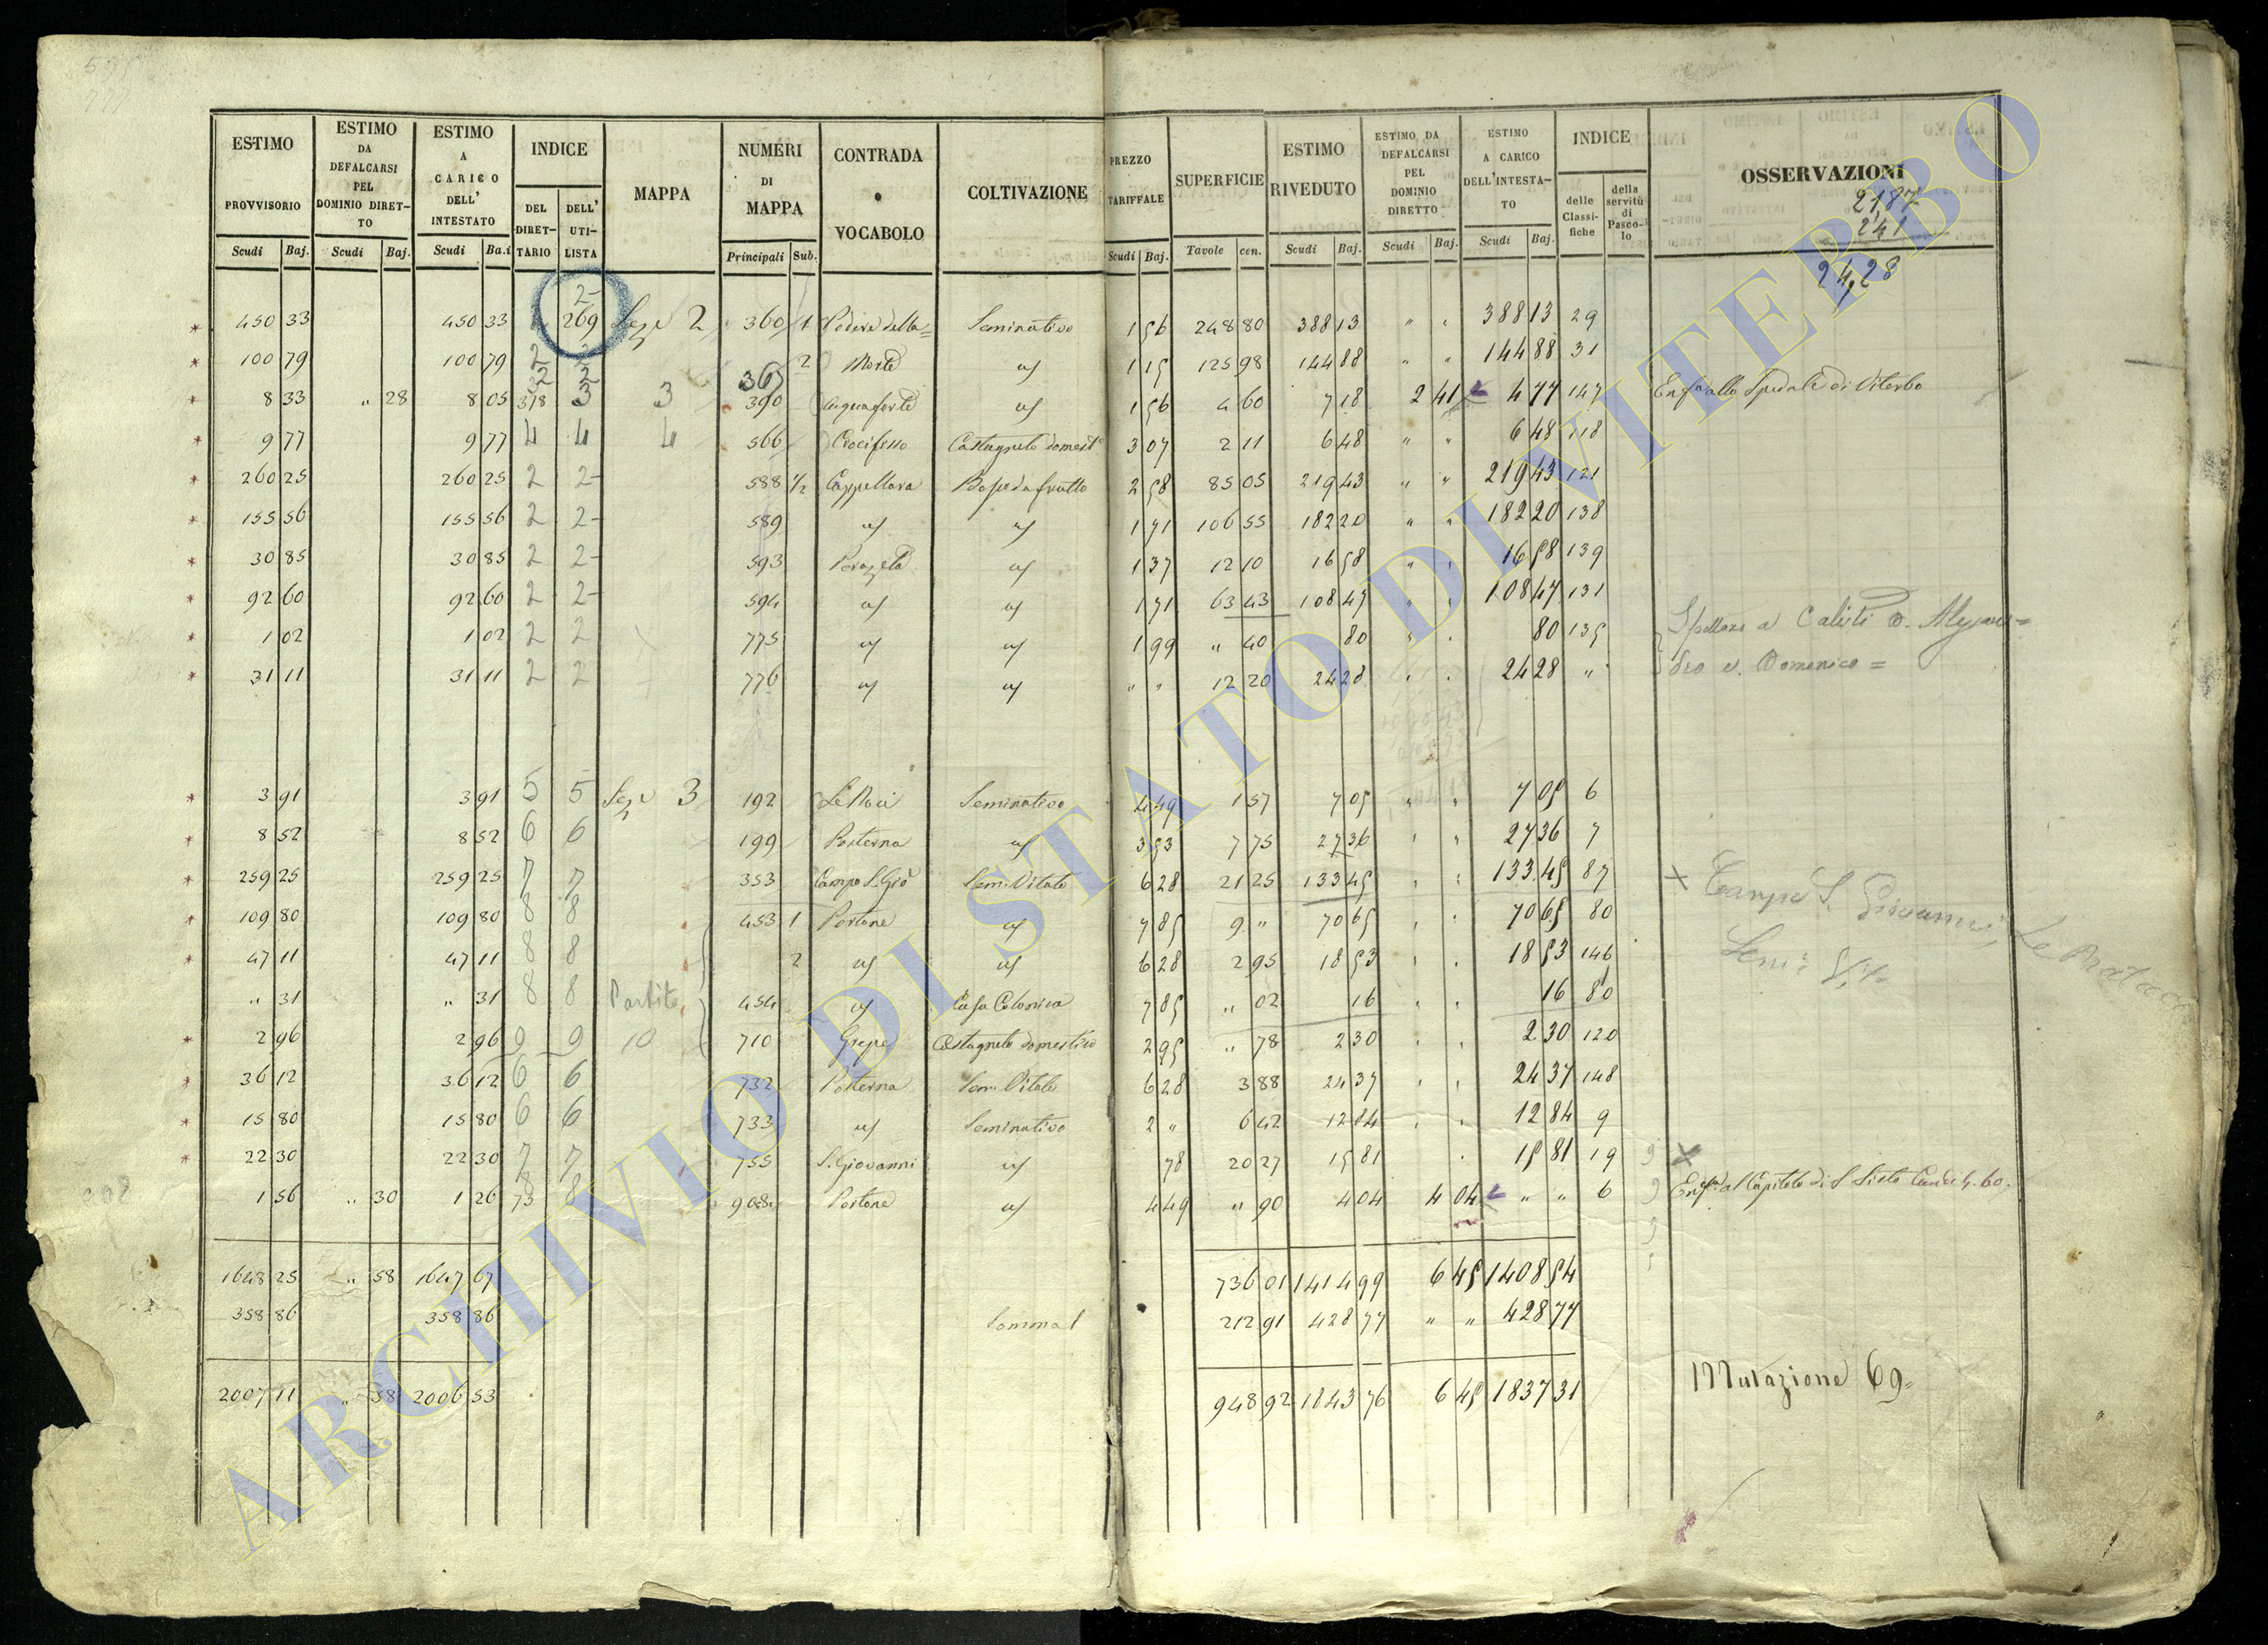 ESTIMO PROVVISORIO Scudi Baj.
ESTIMO DA DEFALCARSI PEL DOMINIO DIRETTO Scudi Baj.
ESTIMO A CARICO DELL' INTESTATO Scudi Ba.i
INDICE DEL DIRETTARIO DELL' UTILISTA
MAPPA
NUMERI DI MAPPA Principali Sub.
CONTRADA o VOCABOLO
COLTIVAZIONE
PREZZO TARIFFALE Scudi Baj.
SUPERFICIE Tavole cen.
ESTIMO RIVEDUTO Scudi Baj.
ESTIMO DA DEFALCARSI PEL DOMINIO DIRETTO Scudi Baj.
ESTIMO A CARICO DELL'INTESTATO Scudi Baj.
INDICE delle Classifiche della servitù di Pascolo
OSSERVAZIONI
2187
241
2428
* 450 33 450 33 2- 269 Sez.e 2 360 1 Podere della= Seminativo 1 56 248 80 388 13 " " 388 13 29
* 100 79 100 79 2 2 Morte uj 1 15 125 98 144 88 " " 144 88 31
* 8 33 " 28 8 05 318 3 3 390 Acquaforte uj 1 56 4 60 7 18 2 41 4 77 147 Enf.a allo Spedale di Viterbo
* 9 77 9 77 4 4 4 566 Crocifisso Castagneto domest.o 3 07 2 11 6 48 " " 6 48 118
* 260 25 260 25 2 2- 588 1/2 Cappellara Bosco da frutto 2 58 85 05 219 43 " " 219 43 121
* 155 56 155 56 2 2- 589 uj uj 1 71 106 55 182 20 " " 182 20 138
* 30 85 30 85 2 2- 593 Perazeta uj 1 37 12 10 16 58 " " 16 58 139
* 92 60 92 60 2 2- 594 uj uj 1 71 63 43 108 47 " " 108 47 131
* 1 02 1 02 2 2 775 uj uj 1 99 " 40 80 " " 80 135 Spettano a Calisti D. Alessan=
* 31 11 31 11 2 2 776 uj uj " " 12 20 24 28 " " 24 28 " dro e Domenico=
* 3 91 3 91 5 5 Sez.e 3 192 Le Noci Seminativo 4 49 1 57 7 05 " " 7 05 6
* 8 52 8 52 6 6 199 Posterna uj 3 53 7 75 27 36 " " 27 36 7
* 259 25 259 25 7 7 353 Campo S. Gio Sem. Vitato 6 28 21 25 133 45 " " 133 45 87 × Campo S. Giovanni, Le Pratacce
* 109 80 109 80 8 8 453 1 Portone uj 7 85 9 " 70 65 " " 70 65 80 Semi: Vit.
* 47 11 47 11 8 8 2 uj uj 6 28 2 95 18 53 " " 18 53 146
" 31 " 31 8 8 Partita 454 uj Casa Colonica 7 85 " 02 16 " " 16 80
* 2 96 2 96 9 9 10 710 Greppe Castagneto domestico 2 95 " 78 2 30 " " 2 30 120
* 36 12 36 12 6 6 732 Posterna Sem. Vitato 6 28 3 88 24 37 " " 24 37 148
* 15 80 15 80 6 6 733 uj Seminativo 2 " 6 42 12 84 " " 12 84 9
* 22 30 22 30 7 7 755 S. Giovanni uj 78 20 27 15 81 " 15 81 19 ×
1 56 " 30 1 26 73 8 908 Portone uj 4 49 " 90 4 04 4 04 " " 6 Enf. al Capitolo di S. Sisto
1648 25 " 58 1647 67 736 01 1414 99 6 45 1408 54
358 86 358 86 Somma 1 212 91 428 77 " " 428 77
2007 11 " 58 2006 53 948 92 1843 76 6 45 1837 31 Mutazione 69=
ARCHIVIO DI STATO DI VITERBO